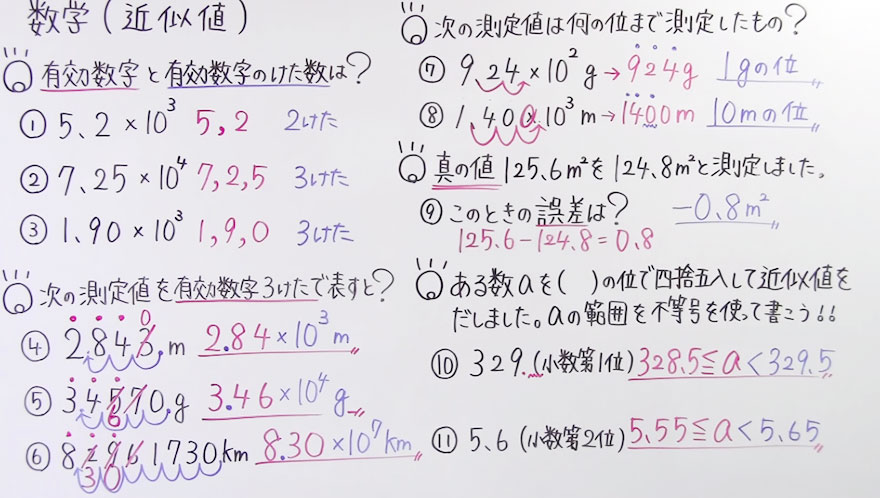 数学(近似値)
有効数字と有効数字のけた数は?
① 5.2×10³ 5,2 2けた
② 7.25×10⁴ 7,2,5 3けた
③ 1.90×10³ 1,9,0 3けた
次の測定値を有効数字3けたで表すと?
0
④ 2843.m 2.84×10³m
⑤ 34570.g 3.46×10⁴g
6
⑥ 82961730km 8.30×10⁷km
30
次の測定値は何の位まで測定したもの?
⑦ 9.24×10²g→924g 1gの位
⑧ 1.400×10³m→1400m 10mの位
真の値125.6m²を124.8m²と測定しました。
⑨ このときの誤差は? -0.8m²
125.6-124.8=0.8
ある数aを( )の位で四捨五入して近似値を
だしました。aの範囲を不等号を使って書こう!!
⑩ 329.(小数第1位) 328.5≦a<329.5
⑪ 5.6(小数第2位) 5.55≦a<5.65